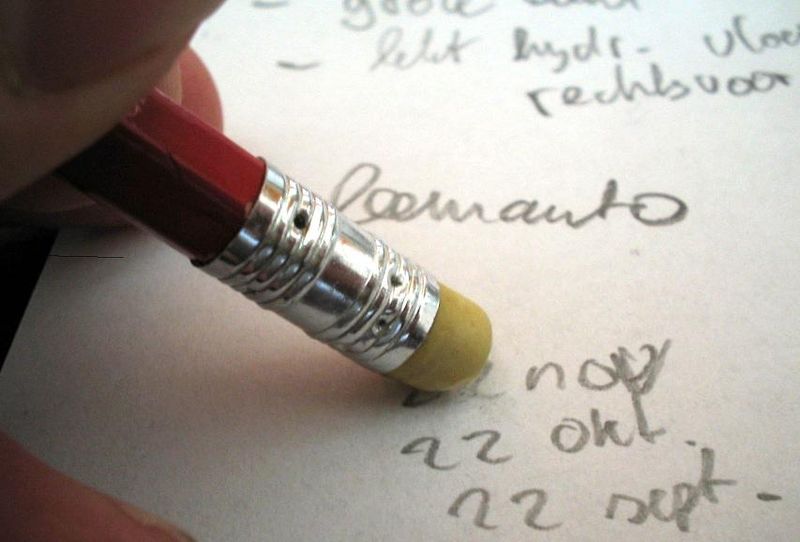 - lekt hydr. vloe
rechtsvoor
leemauto
nov
22 okt.
22 sept.